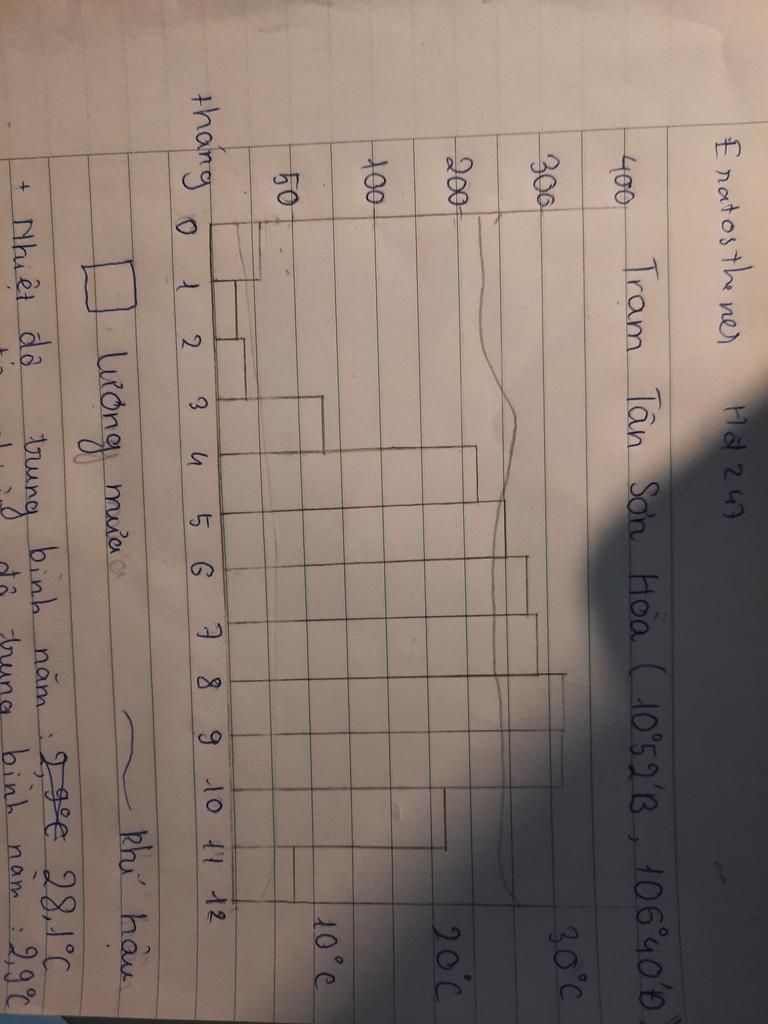 Eratosthenes
Trạm Tân Sơn Hòa (10°52'B, 106°40'Đ)
400
300 30°C
200 20°C
100
50 10°C
tháng 0 1 2 3 4 5 6 7 8 9 10 11 12
lượng mưa khí hậu
+ Nhiệt độ trung bình năm : 2,9°C 28,1°C
độ trung bình năm : 2,9°C